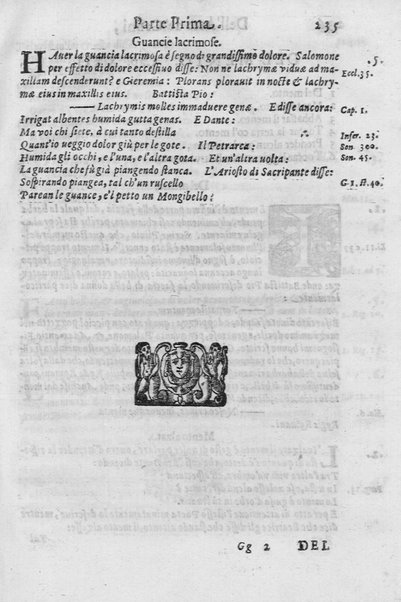 Parte Prima. 235
Guancie lacrimose. .5.
HAver la guancia lacrimosa è segno di grandissimo dolore. Salomone
per effetto di dolore eccessivo disse: Non ne lachrymæ viduæ ad ma- Eccl.35.
xillam descenderunt? e Gieremia: Plorans ploravit in nocte & lachry-
mæ eius in maxillis eius. Battista Pio:
—— Lachrymis molles immaduere genæ. E disse ancora: Cap. 1.
Irrigat albentes humida gutta genas. E Dante:
Ma voi chi siete, à cui tanto destilla Infer. 23.
Quant'io veggio dolor giù per le gote. Il Petrarca: Son. 300.
Humida gli occhi, e l'una, e l'altra gota. Et un'altra volta: Son. 45.
La guancia che fù già piangendo stanca. L'Ariosto di Sacripante disse:
Sospirando piangea, tal ch'un ruscello G 1. st. 40.
Parean le guance, e'l petto un Mongibello:
Gg 2 DEL